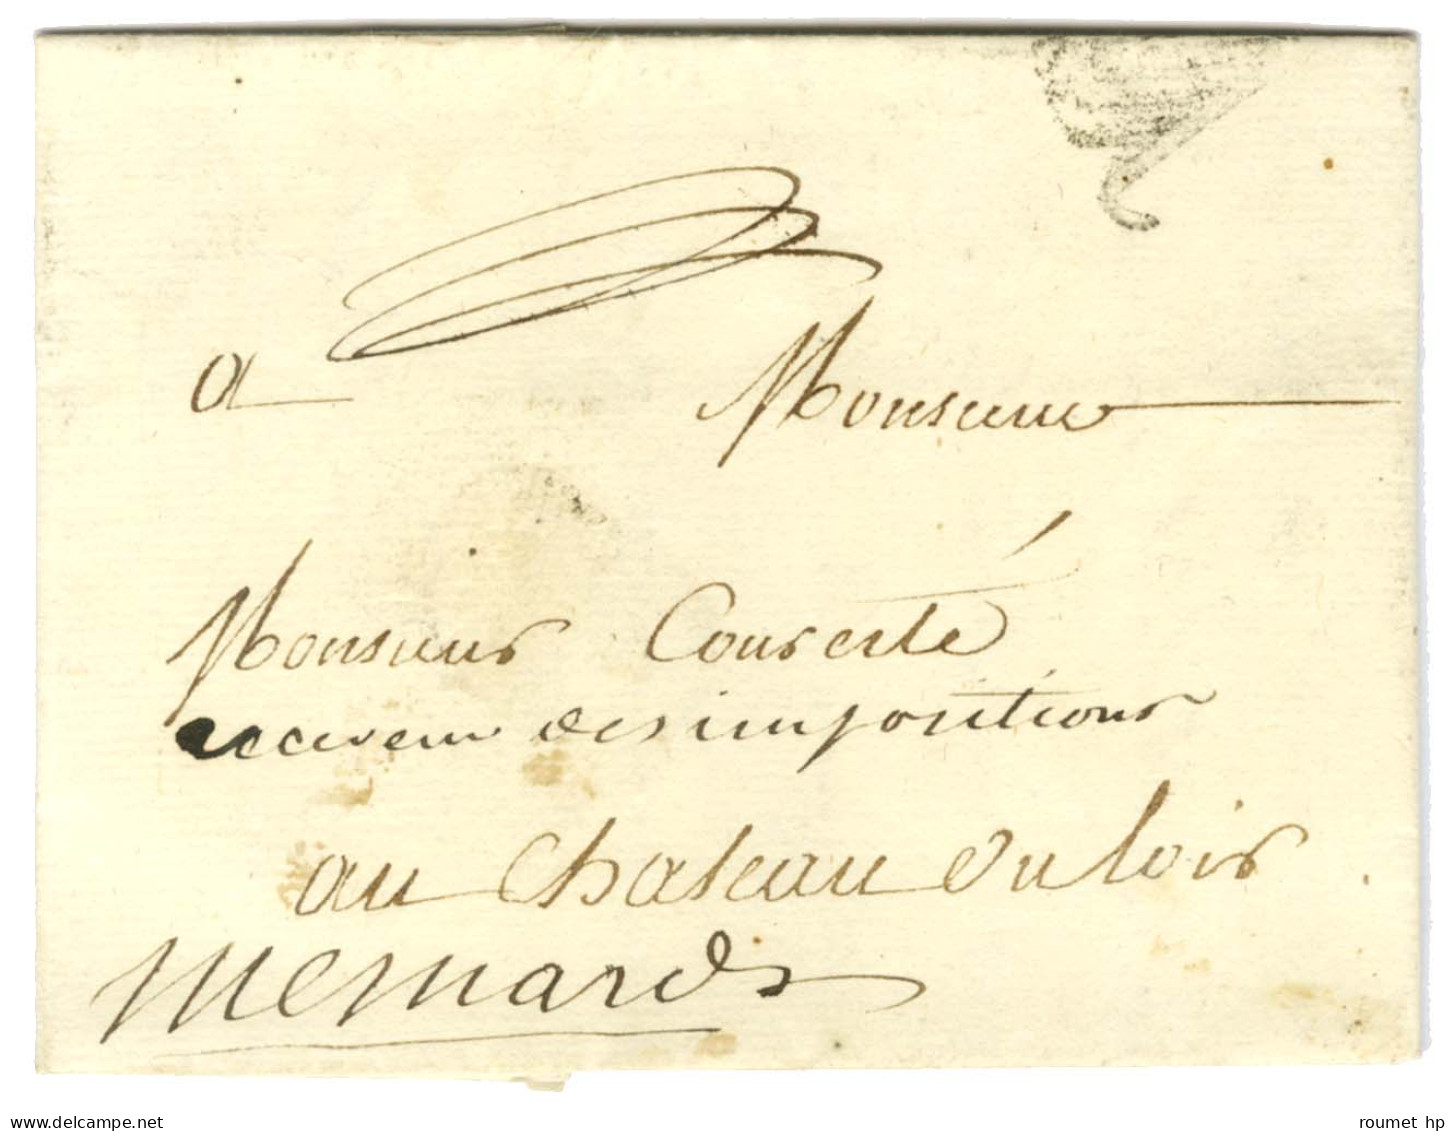 a Monsieur
Monsieur Courcité
receveur des impositions
au chateau du loir
Menards
delcampe.net
roumet hp